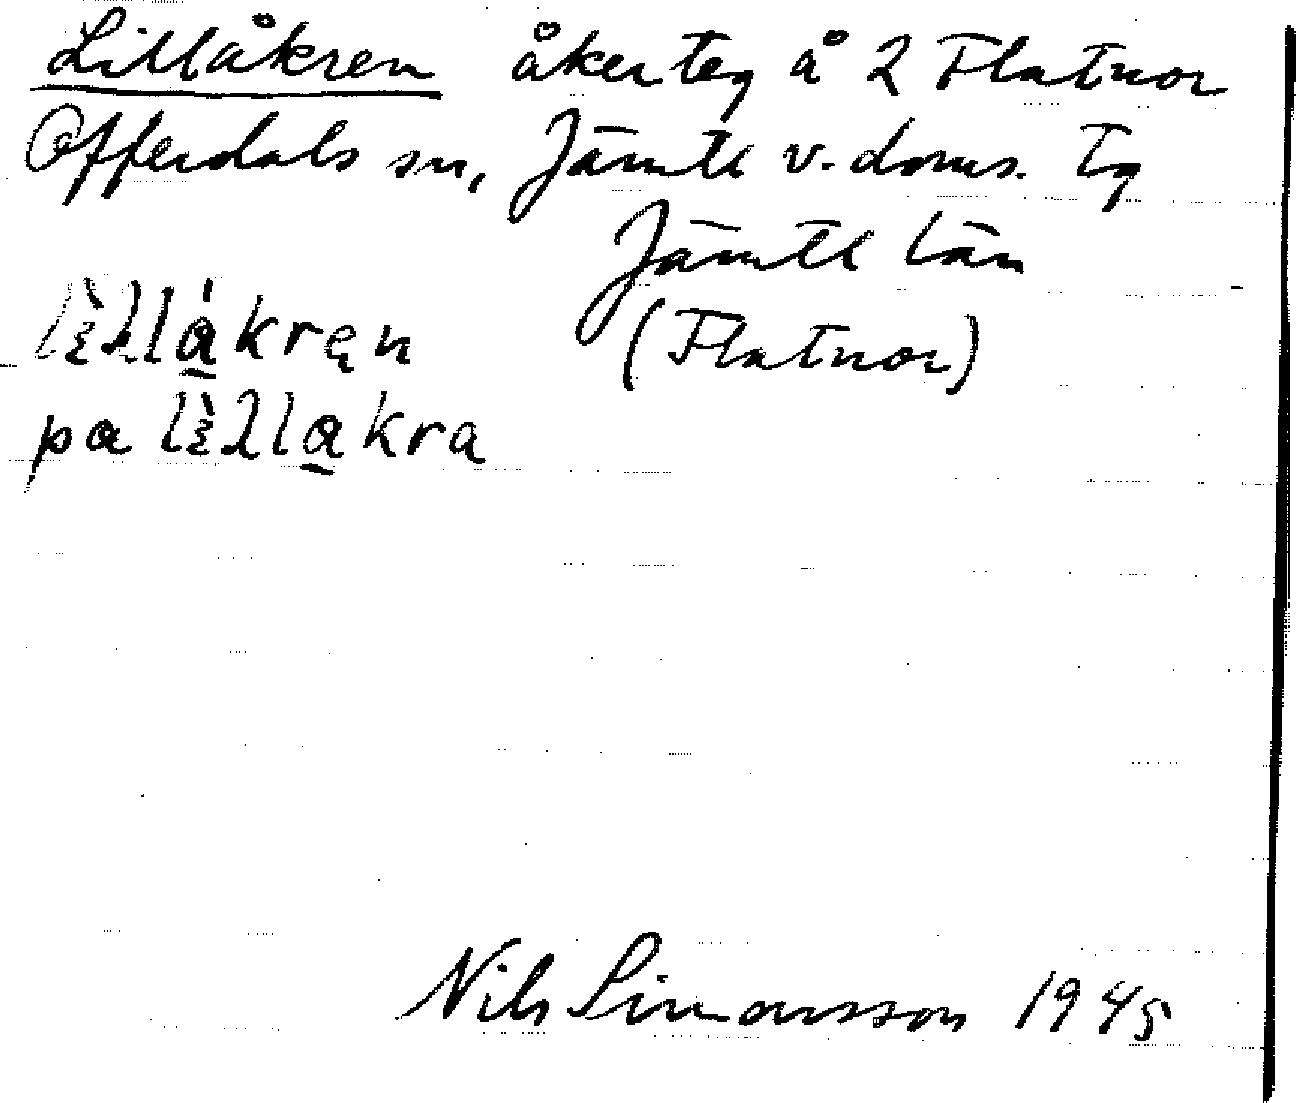 Lillåkren åkerteg å 2 Flatnor
Offerdals sn, Jämtl v. doms. tg
Jämtl län
(Flatnor)
lèllákren
pa lèllakra
Nils Simonsson 1945